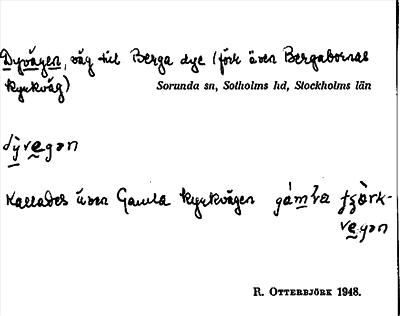 Dyvägen, väg till Berga dye (förr även Bergabornas
kyrkväg)
Sorunda sn, Sotholms hd, Stockholms län
dỳvegən
Kallades även Gamla kyrkvägen gám²ɩa
vegən
R. OTTERBJÖRK 1948.